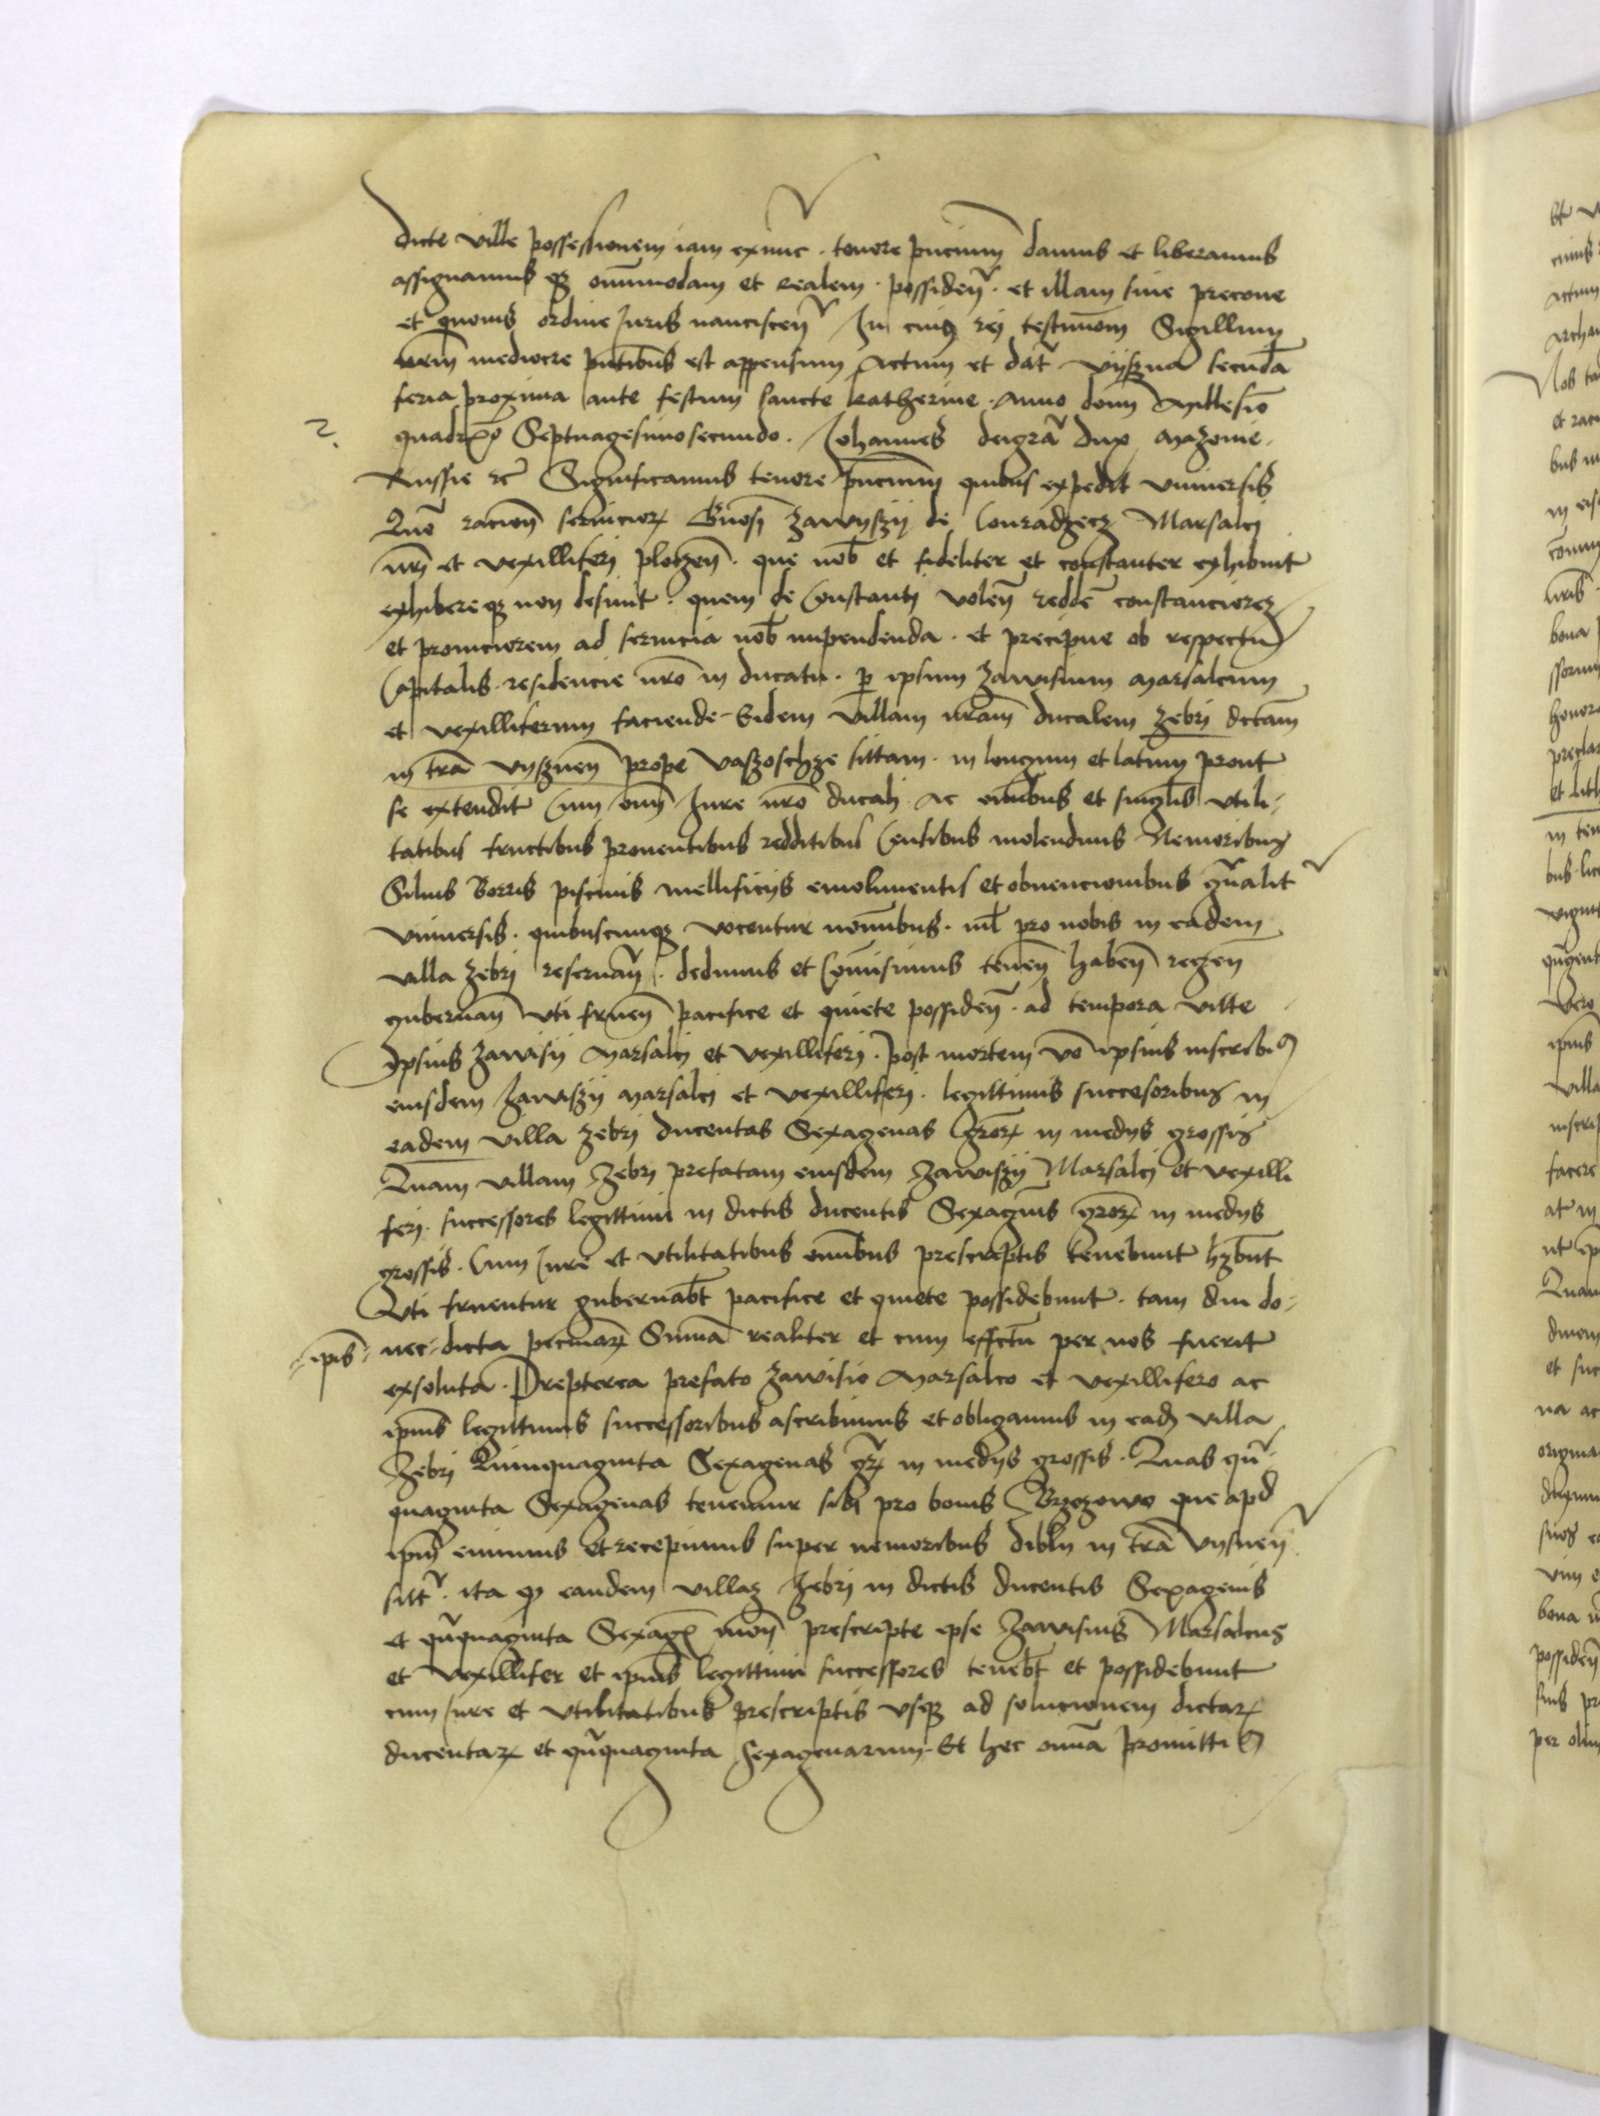 dicte ville possessionem iam exnunc . tenore pñcium damus et liberamus
assignamus qȝ om̄imodam et realem . possideñ . et illam sine precone
et quouis ordine Juris nanciscen̄ In cuiq rei testimoniū Sigillum
nrm̄ mediocre pñtibus est appensum Actum et dat̄ Vyszna secūda
feria proxima ante festum sancte katherine . Anno domī Millesiō
quadrīo Septuagesimosecundo . Johannes deigrā dux Mazouie
Russie etc̄ Significamus tenore pñcium quibus expedit vniuersis
Quō racioñ seruicioꝝ Gñosi Zawyszÿ de Conradzecz Marsalci
nrī et vexilliferi plocȝen̄ . que nob̄ et fideliter et constanter exhibuit
exhibereqȝ non desinit . quem de Constanti volen̄ redde constanciorez
et proniciorem ad seruicia nob̄ impendenda . et precipue ob respectū
Capitalis residencie nrō in ducatu . per ipsum Zawisium Marsalcum
et vexilliferum faciende Eidem villam nrām ducalem Zebri dictam
in trā vysznen̄ prope Vaszoschze sittam . in longum et latum prout
se extendit Cum om̄i Jure nrō ducali Ac om̄ibus et singl̄is vtili-
tatibus fructibus prouentibus redditibus Censibus molendinis Nemoribus
Siluis Borris piscinis mellificijs emolumentis et obuencionibus gñalit
vniuersis . quibuscumqȝ vocentur nom̄ibus . nil̄ pro nobis in eadem
villa Zebri reseruan̄ . dedimus et Com̄isimus tenen̄ haben̄ regen̄
gubernan̄ vti fruen̄ pacifice et quiete possiden̄ . ad tempora vitte
Ipsius Zawisij Marsalci et vexilliferi . post mortem vō ipsius inscribimꝰ
eiusdem Zawiszij Marsalci et vexilliferi . legittimis succesoribus in
eadem villa Zebri ducentas Sexagenas groꝝ in medijs grossis
Quam villam Zebri prefatam eiusdem Zawiszij Marsalci et vexilli
feri . successores legittimi in dictis ducentis Sexagenis groꝝ in medijs
grossis . Cum Jure et vtilitatibus om̄ibus prescriptis tenebunt hȝbūt
Vti fruentur gubernab̄t pacifice et quiete possidebunt . tam diu do-
-ip̄is- nec - dicta pecūiaꝝ Sum̄a realiter et cum effectū per nos fuerit
exsoluta . Preptarea prefato Zawisio Marsalco et vexillifero ac
ipsius legittimis successoribus ascribimus et obligamus in eadȝ villa
Zebri Quinquaginta Sexagenas grꝝ in medijs grossis . Quas qū-
quaginta Sexagenas tenemur sibi pro bonis Brzezowo que apd
ipm̄ emimus et recepimus super nemoribus dibln in trā vysnen̄
sitt̄ . ita qȝ eandem villaȝ Zebri in dictis ducentis Sexagenis
et qūquaginta Sexageñ mon̄ prescripte ipse Zawisius Marsalcus
et vexillifer et ipsius legittimi successores teneb̄t et possidebunt
cum Jure et vtilitatibus prescriptis vsqȝ ad solucionem dictaꝝ
ducentaꝝ et qūquaginta sexagenarum . Et hec om̄ia promittimꝰ